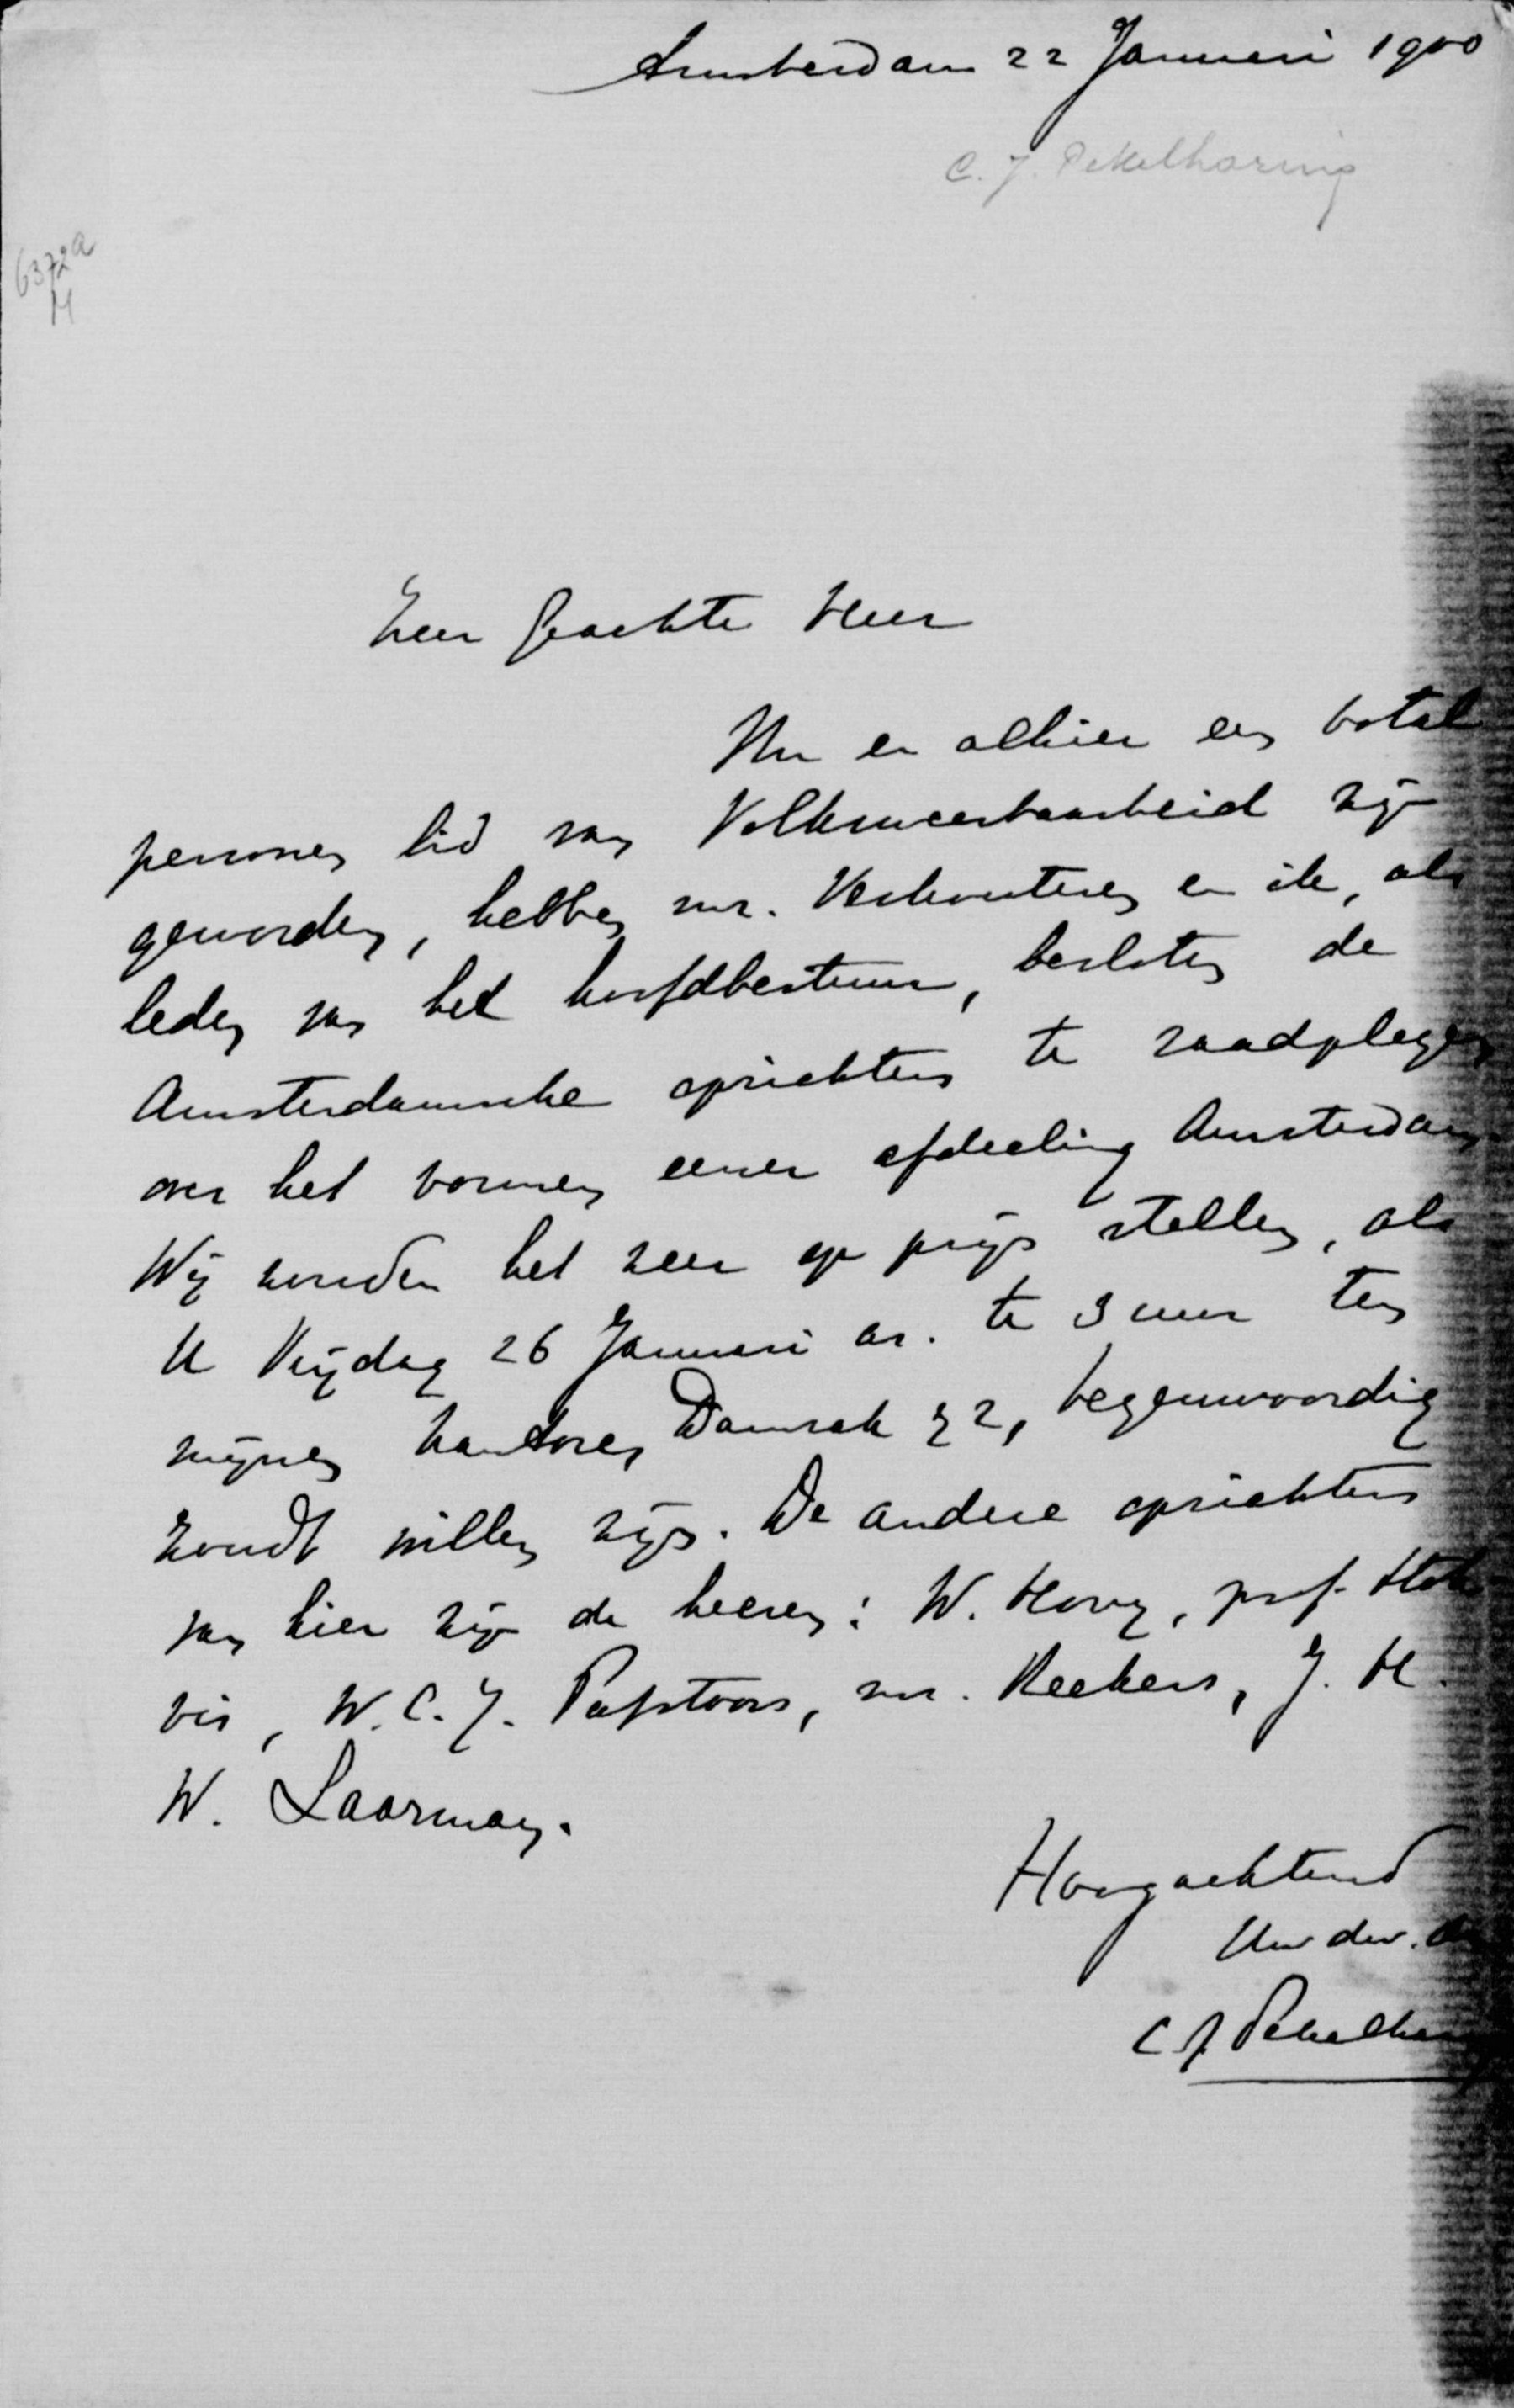 Amsterdam 22 Januari 1900
C. J. Pekelharing
6372a
M
Zeer Geachte Heer
Nu er alhier een total
personen lid van Volksweerbaarheid zijn
geworden, hebben mr. Verkouteren en ik, als
leden van het hoofdbestuur, besloten de
Amsterdamsche oprichters te raadplegen
over het vormen eener afdeeling Amsterdam
Wij zouden het zeer op prijs stellen, als
U Vrijdag 26 Januari as. te 3 uur ten
mijnen kantore, Damrak 22, tegenwoordig
zoudt willen zijn. De andere oprichters
van hier zijn de heeren: W. Hovy, prof.
vis, W. C. J. Passtoors, mr. Reekers, J. H.
W. Laarman.
Hoogachtend
Uw dw.
C J Pekelhar